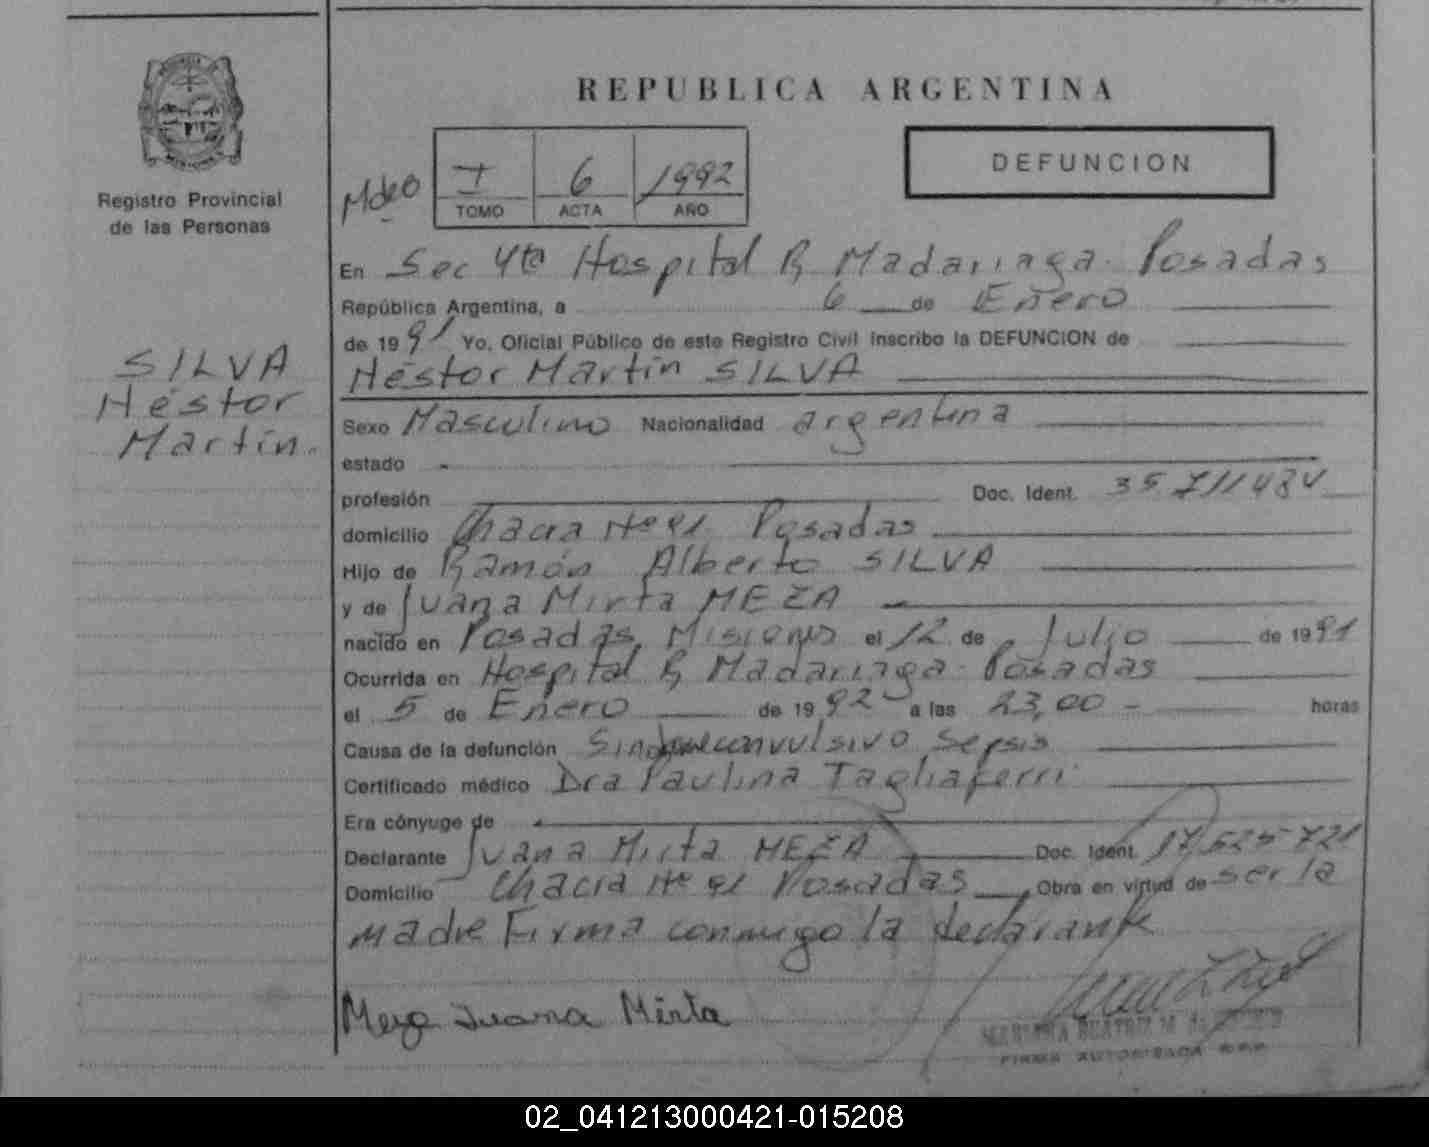 REPUBLICA ARGENTINA
DEFUNCION
Registro Provincial
de las Personas
I 6 1992
TOMO ACTA AÑO
En Sec 4ta Hospital R Madariaga. Posadas
República Argentina, a 6 de Enero
de 1991 Yo, Oficial Público de este Registro Civil inscribo la DEFUNCION de
Néstor Martín SILVA
SILVA
Néstor
Martín.
Sexo Masculino Nacionalidad argentina
estado
profesión Doc. Ident. 35.711484
domicilio Chacra Nº 91. Posadas
Hijo de Ramón Alberto SILVA
y de Juana Mirta MEZA
nacido en Posadas, Misiones el 12 de Julio de 1991
Ocurrida en Hospital R Madariaga. Posadas
el 5 de Enero de 1992 a las 23,00 - horas
Causa de la defunción Sindrome convulsivo Sepsis
Certificado médico Dra Paulina Tagliaferri
Era cónyuge de
Declarante Juana Mirta MEZA Doc. Ident. 17.525.721
Domicilio Chacra Nº 91 Posadas Obra en virtud de ser la
madre Firma conmigo la declarante
Meza Juana Mirta
FIRMA AUTORIZADA R.P.P.
02_041213000421-015208